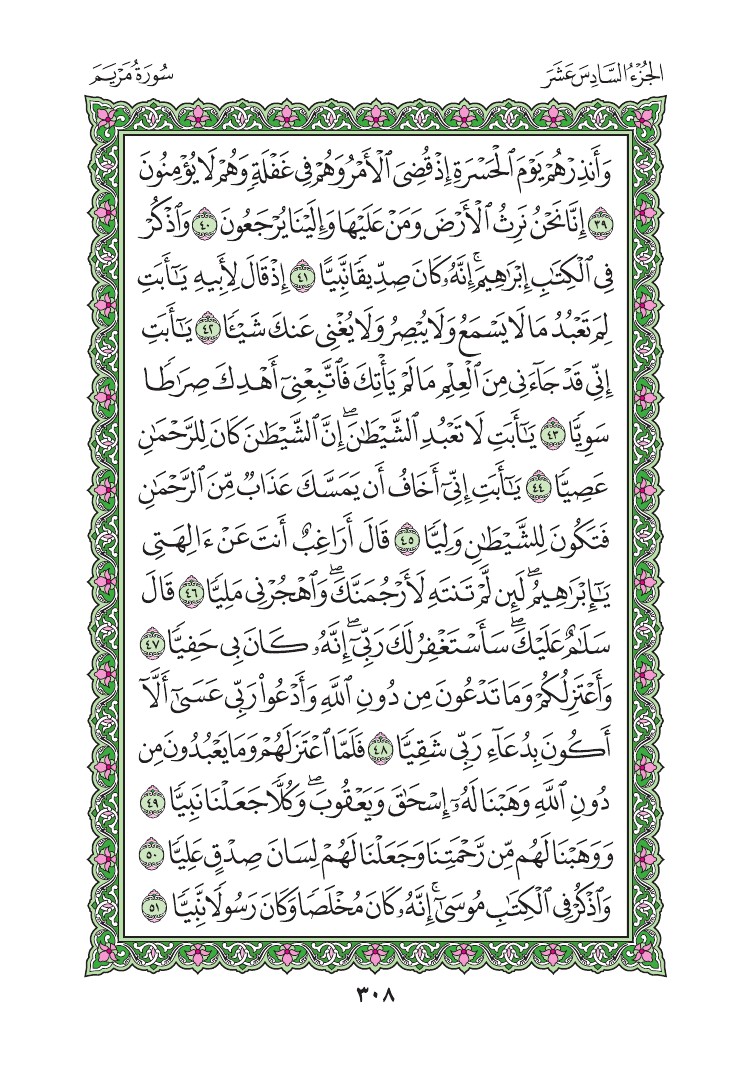 الجزء السادس عشر
سورة مريم
وَأَنذِرْهُمْ يَوْمَ ٱلْحَسْرَةِ إِذْ قُضِىَ ٱلْأَمْرُ وَهُمْ فِى غَفْلَةٍ وَهُمْ لَا يُؤْمِنُونَ
٣٩ إِنَّا نَحْنُ نَرِثُ ٱلْأَرْضَ وَمَنْ عَلَيْهَا وَإِلَيْنَا يُرْجَعُونَ ٤٠ وَٱذْكُرْ
فِى ٱلْكِتَٰبِ إِبْرَٰهِيمَۚ إِنَّهُۥ كَانَ صِدِّيقًا نَّبِيًّا ٤١ إِذْ قَالَ لِأَبِيهِ يَٰٓأَبَتِ
لِمَ تَعْبُدُ مَا لَا يَسْمَعُ وَلَا يُبْصِرُ وَلَا يُغْنِى عَنكَ شَيْـًٔا ٤٢ يَٰٓأَبَتِ
إِنِّى قَدْ جَآءَنِى مِنَ ٱلْعِلْمِ مَا لَمْ يَأْتِكَ فَٱتَّبِعْنِىٓ أَهْدِكَ صِرَٰطًا
سَوِيًّا ٤٣ يَٰٓأَبَتِ لَا تَعْبُدِ ٱلشَّيْطَٰنَۖ إِنَّ ٱلشَّيْطَٰنَ كَانَ لِلرَّحْمَٰنِ
عَصِيًّا ٤٤ يَٰٓأَبَتِ إِنِّىٓ أَخَافُ أَن يَمَسَّكَ عَذَابٌ مِّنَ ٱلرَّحْمَٰنِ
فَتَكُونَ لِلشَّيْطَٰنِ وَلِيًّا ٤٥ قَالَ أَرَاغِبٌ أَنتَ عَنْ ءَالِهَتِى
يَٰٓإِبْرَٰهِيمُۖ لَئِن لَّمْ تَنتَهِ لَأَرْجُمَنَّكَۖ وَٱهْجُرْنِى مَلِيًّا ٤٦ قَالَ
سَلَٰمٌ عَلَيْكَۖ سَأَسْتَغْفِرُ لَكَ رَبِّىٓۖ إِنَّهُۥ كَانَ بِى حَفِيًّا ٤٧
وَأَعْتَزِلُكُمْ وَمَا تَدْعُونَ مِن دُونِ ٱللَّهِ وَأَدْعُوا۟ رَبِّى عَسَىٰٓ أَلَّآ
أَكُونَ بِدُعَآءِ رَبِّى شَقِيًّا ٤٨ فَلَمَّا ٱعْتَزَلَهُمْ وَمَا يَعْبُدُونَ مِن
دُونِ ٱللَّهِ وَهَبْنَا لَهُۥٓ إِسْحَٰقَ وَيَعْقُوبَۖ وَكُلًّا جَعَلْنَا نَبِيًّا ٤٩
وَوَهَبْنَا لَهُم مِّن رَّحْمَتِنَا وَجَعَلْنَا لَهُمْ لِسَانَ صِدْقٍ عَلِيًّا ٥٠
وَٱذْكُرْ فِى ٱلْكِتَٰبِ مُوسَىٰٓۚ إِنَّهُۥ كَانَ مُخْلَصًا وَكَانَ رَسُولًا نَّبِيًّا ٥١
٣٠٨